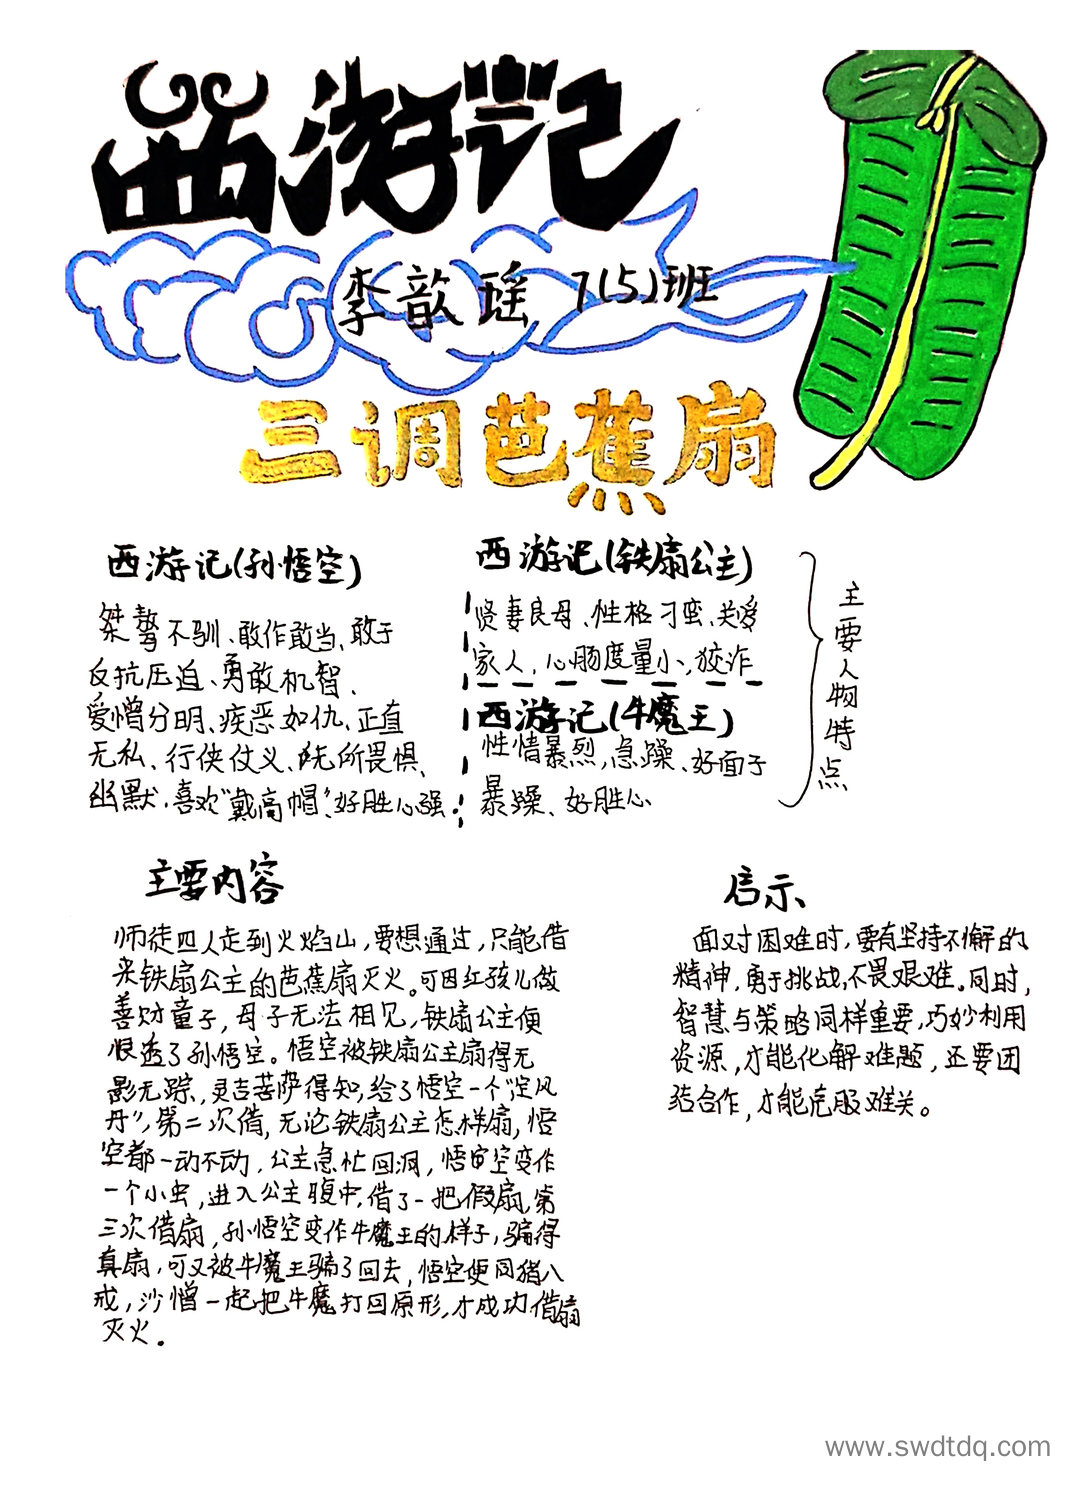 西游记
李歆瑶 7(5)班
三调芭蕉扇
西游记(孙悟空)
桀骜不驯、敢作敢当、敢于
反抗压迫、勇敢机智、
爱憎分明、疾恶如仇、正直
无私、行侠仗义、无所畏惧、
幽默、喜欢"戴高帽"、好胜心强.
西游记(铁扇公主)
贤妻良母、性格刁蛮、关爱
家人、心肠度量小、狡诈
西游记(牛魔王)
性情暴烈,急躁、好面子
暴躁、好胜心
主要人物特点
主要内容
师徒四人走到火焰山,要想通过,只能借
来铁扇公主的芭蕉扇灭火。可因红孩儿做
善财童子,母子无法相见,铁扇公主便
恨透了孙悟空。悟空被铁扇公主扇得无
影无踪,灵吉菩萨得知,给了悟空一个"定风
丹",第二次借,无论铁扇公主怎样扇,悟
空都一动不动,公主急忙回洞,悟空变作
一个小虫,进入公主腹中,借了一把假扇,第
三次借扇,孙悟空变作牛魔王的样子,骗得
真扇,可又被牛魔王骗了回去,悟空便同猪八
戒,沙憎一起把牛魔打回原形,才成功借扇
灭火.
启示
面对困难时,要有坚持不懈的
精神,勇于挑战,不畏艰难。同时,
智慧与策略同样重要,巧妙利用
资源,才能化解难题,还要团
结合作,才能克服难关。
www.swdtdq.com